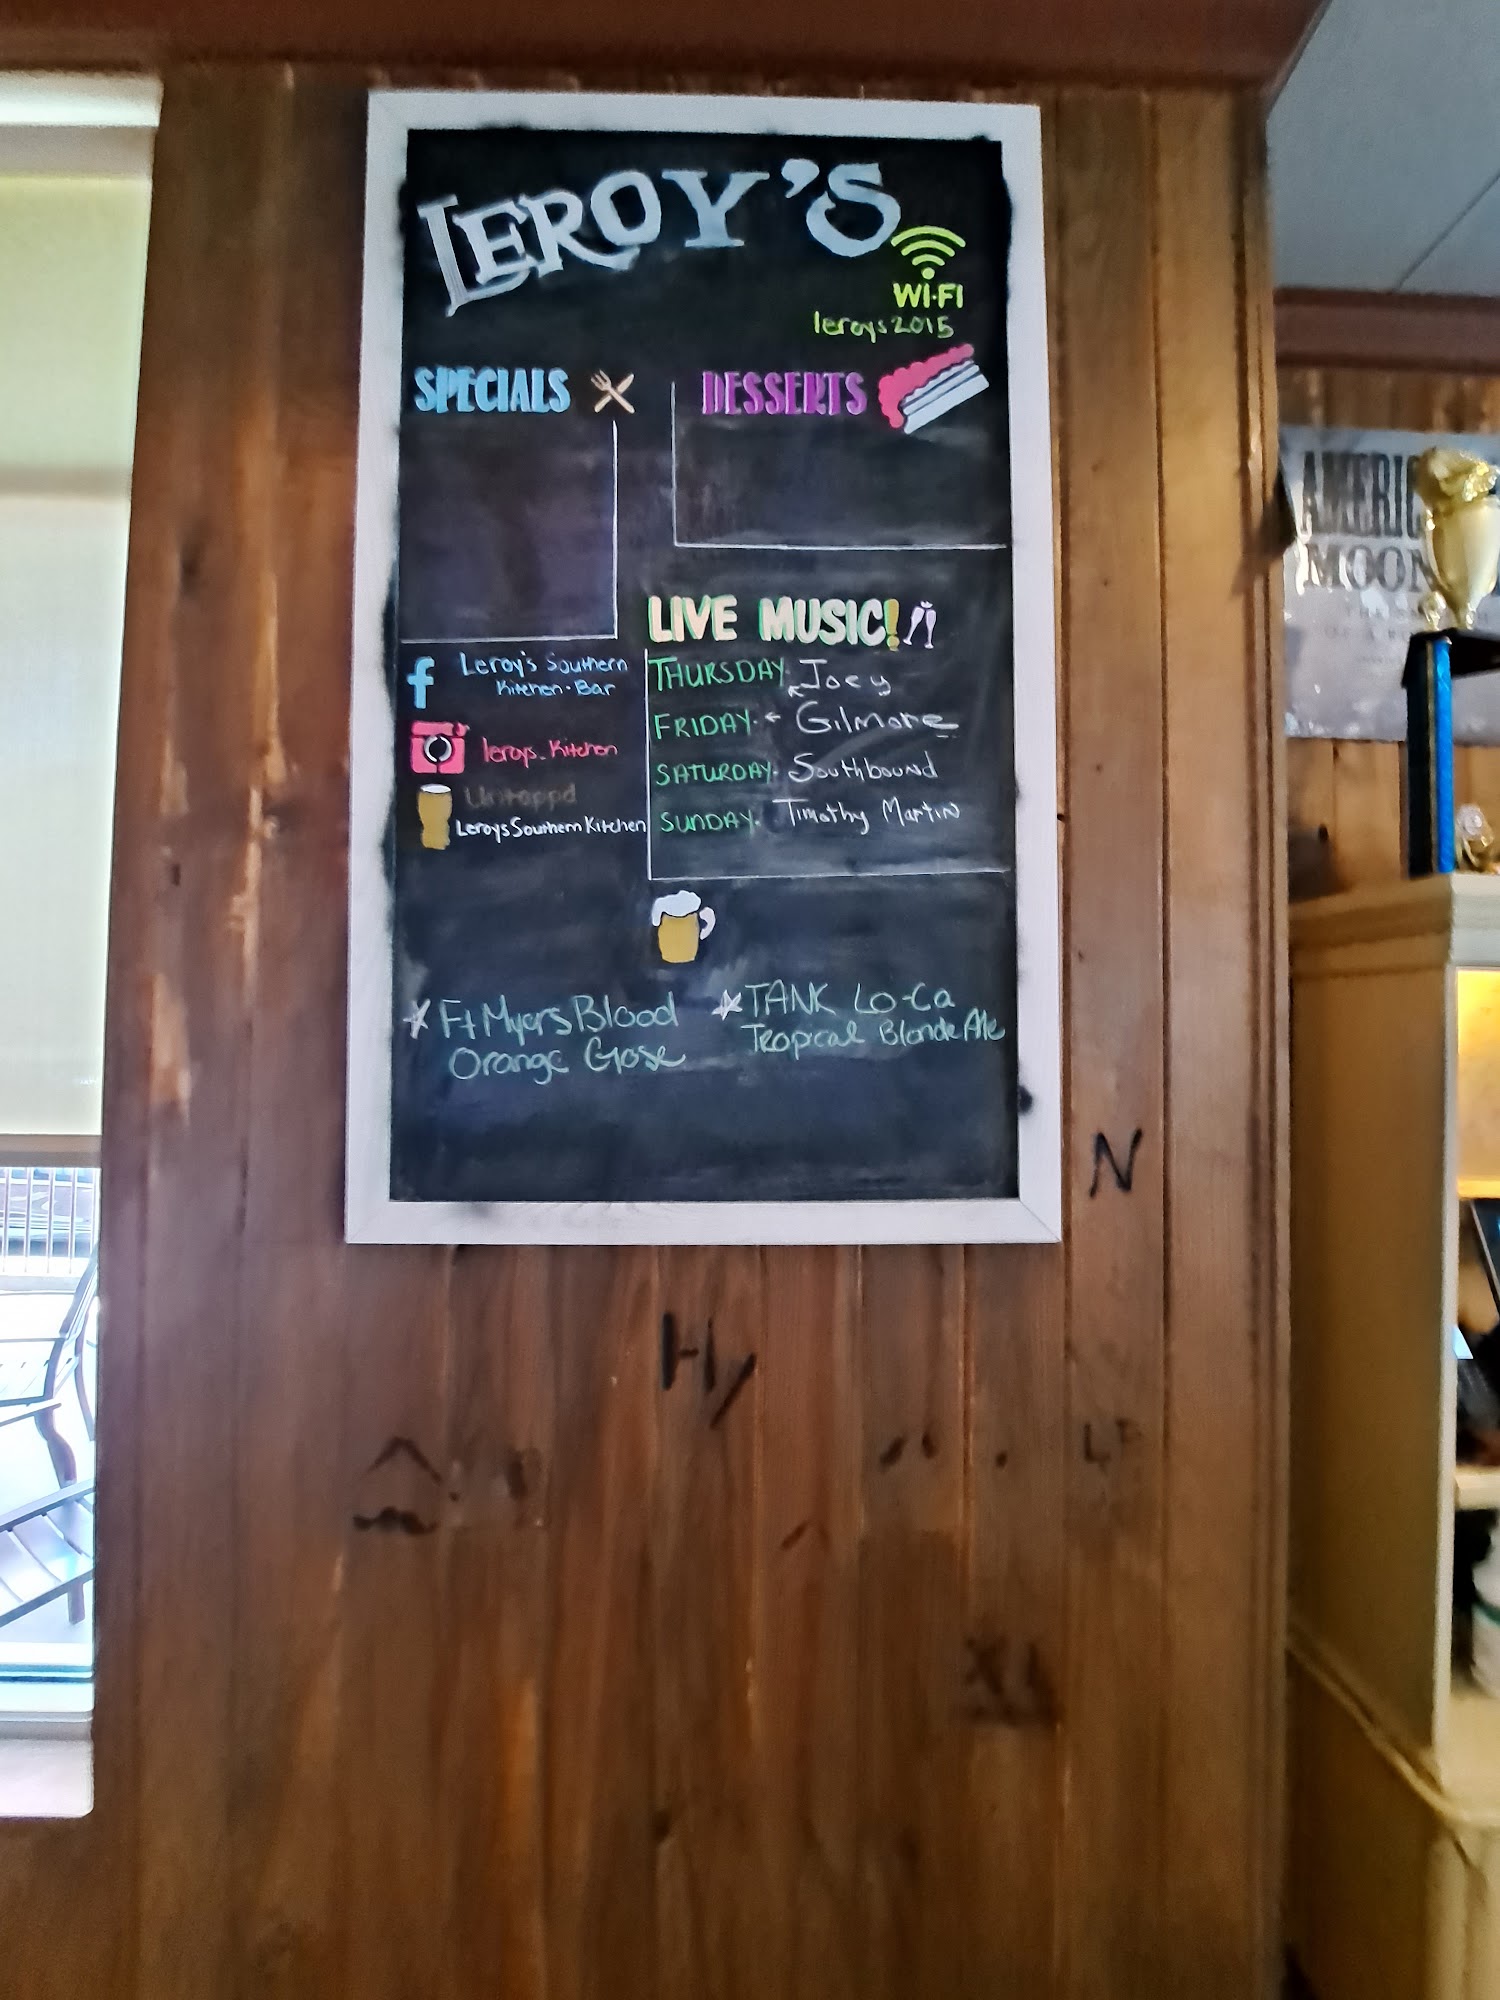 LEROY'S
WI-FI
leroys2015
SPECIALS
DESSERTS
LIVE MUSIC!
THURSDAY. Joey
FRIDAY. Gilmore
SATURDAY. Southbound
SUNDAY. Timothy Martin
Leroy's Southern
Kitchen · Bar
leroys_Kitchen
Untappd
LeroysSouthernKitchen
Ft Myers Blood
Orange Gose
TANK Lo-Ca
Tropical Blonde Ale
N
H
AMERIC
MOON